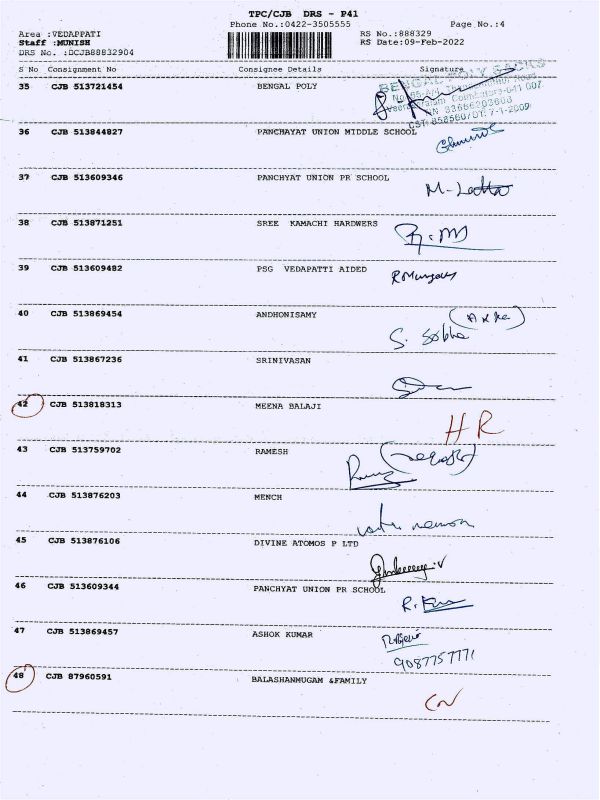 TPC/CJB DRS - P41
Phone No.:0422-3505555 Page No.:4
Area :VEDAPPATI RS No.:888329
Staff :MUNISH RS Date:09-Feb-2022
DRS No. :DCJB88832904
S No Consignment No Consignee Details Signature
35 CJB 513721454 BENGAL POLY
BENGAL POLY SACKS
36 CJB 513844827 PANCHAYAT UNION MIDDLE SCHOOL
37 CJB 513609346 PANCHYAT UNION PR SCHOOL
M-Latha
38 CJB 513871251 SREE KAMACHI HARDWERS
39 CJB 513609482 PSG VEDAPATTI AIDED
40 CJB 513869454 ANDHONISAMY
S. Sobha
41 CJB 513867236 SRINIVASAN
42 CJB 513818313 MEENA BALAJI
HR
43 CJB 513759702 RAMESH
44 CJB 513876203 MENCH
45 CJB 513876106 DIVINE ATOMOS P LTD
46 CJB 513609344 PANCHYAT UNION PR SCHOOL
47 CJB 513869457 ASHOK KUMAR
9087757771
48 CJB 87960591 BALASHANMUGAM &FAMILY
CN